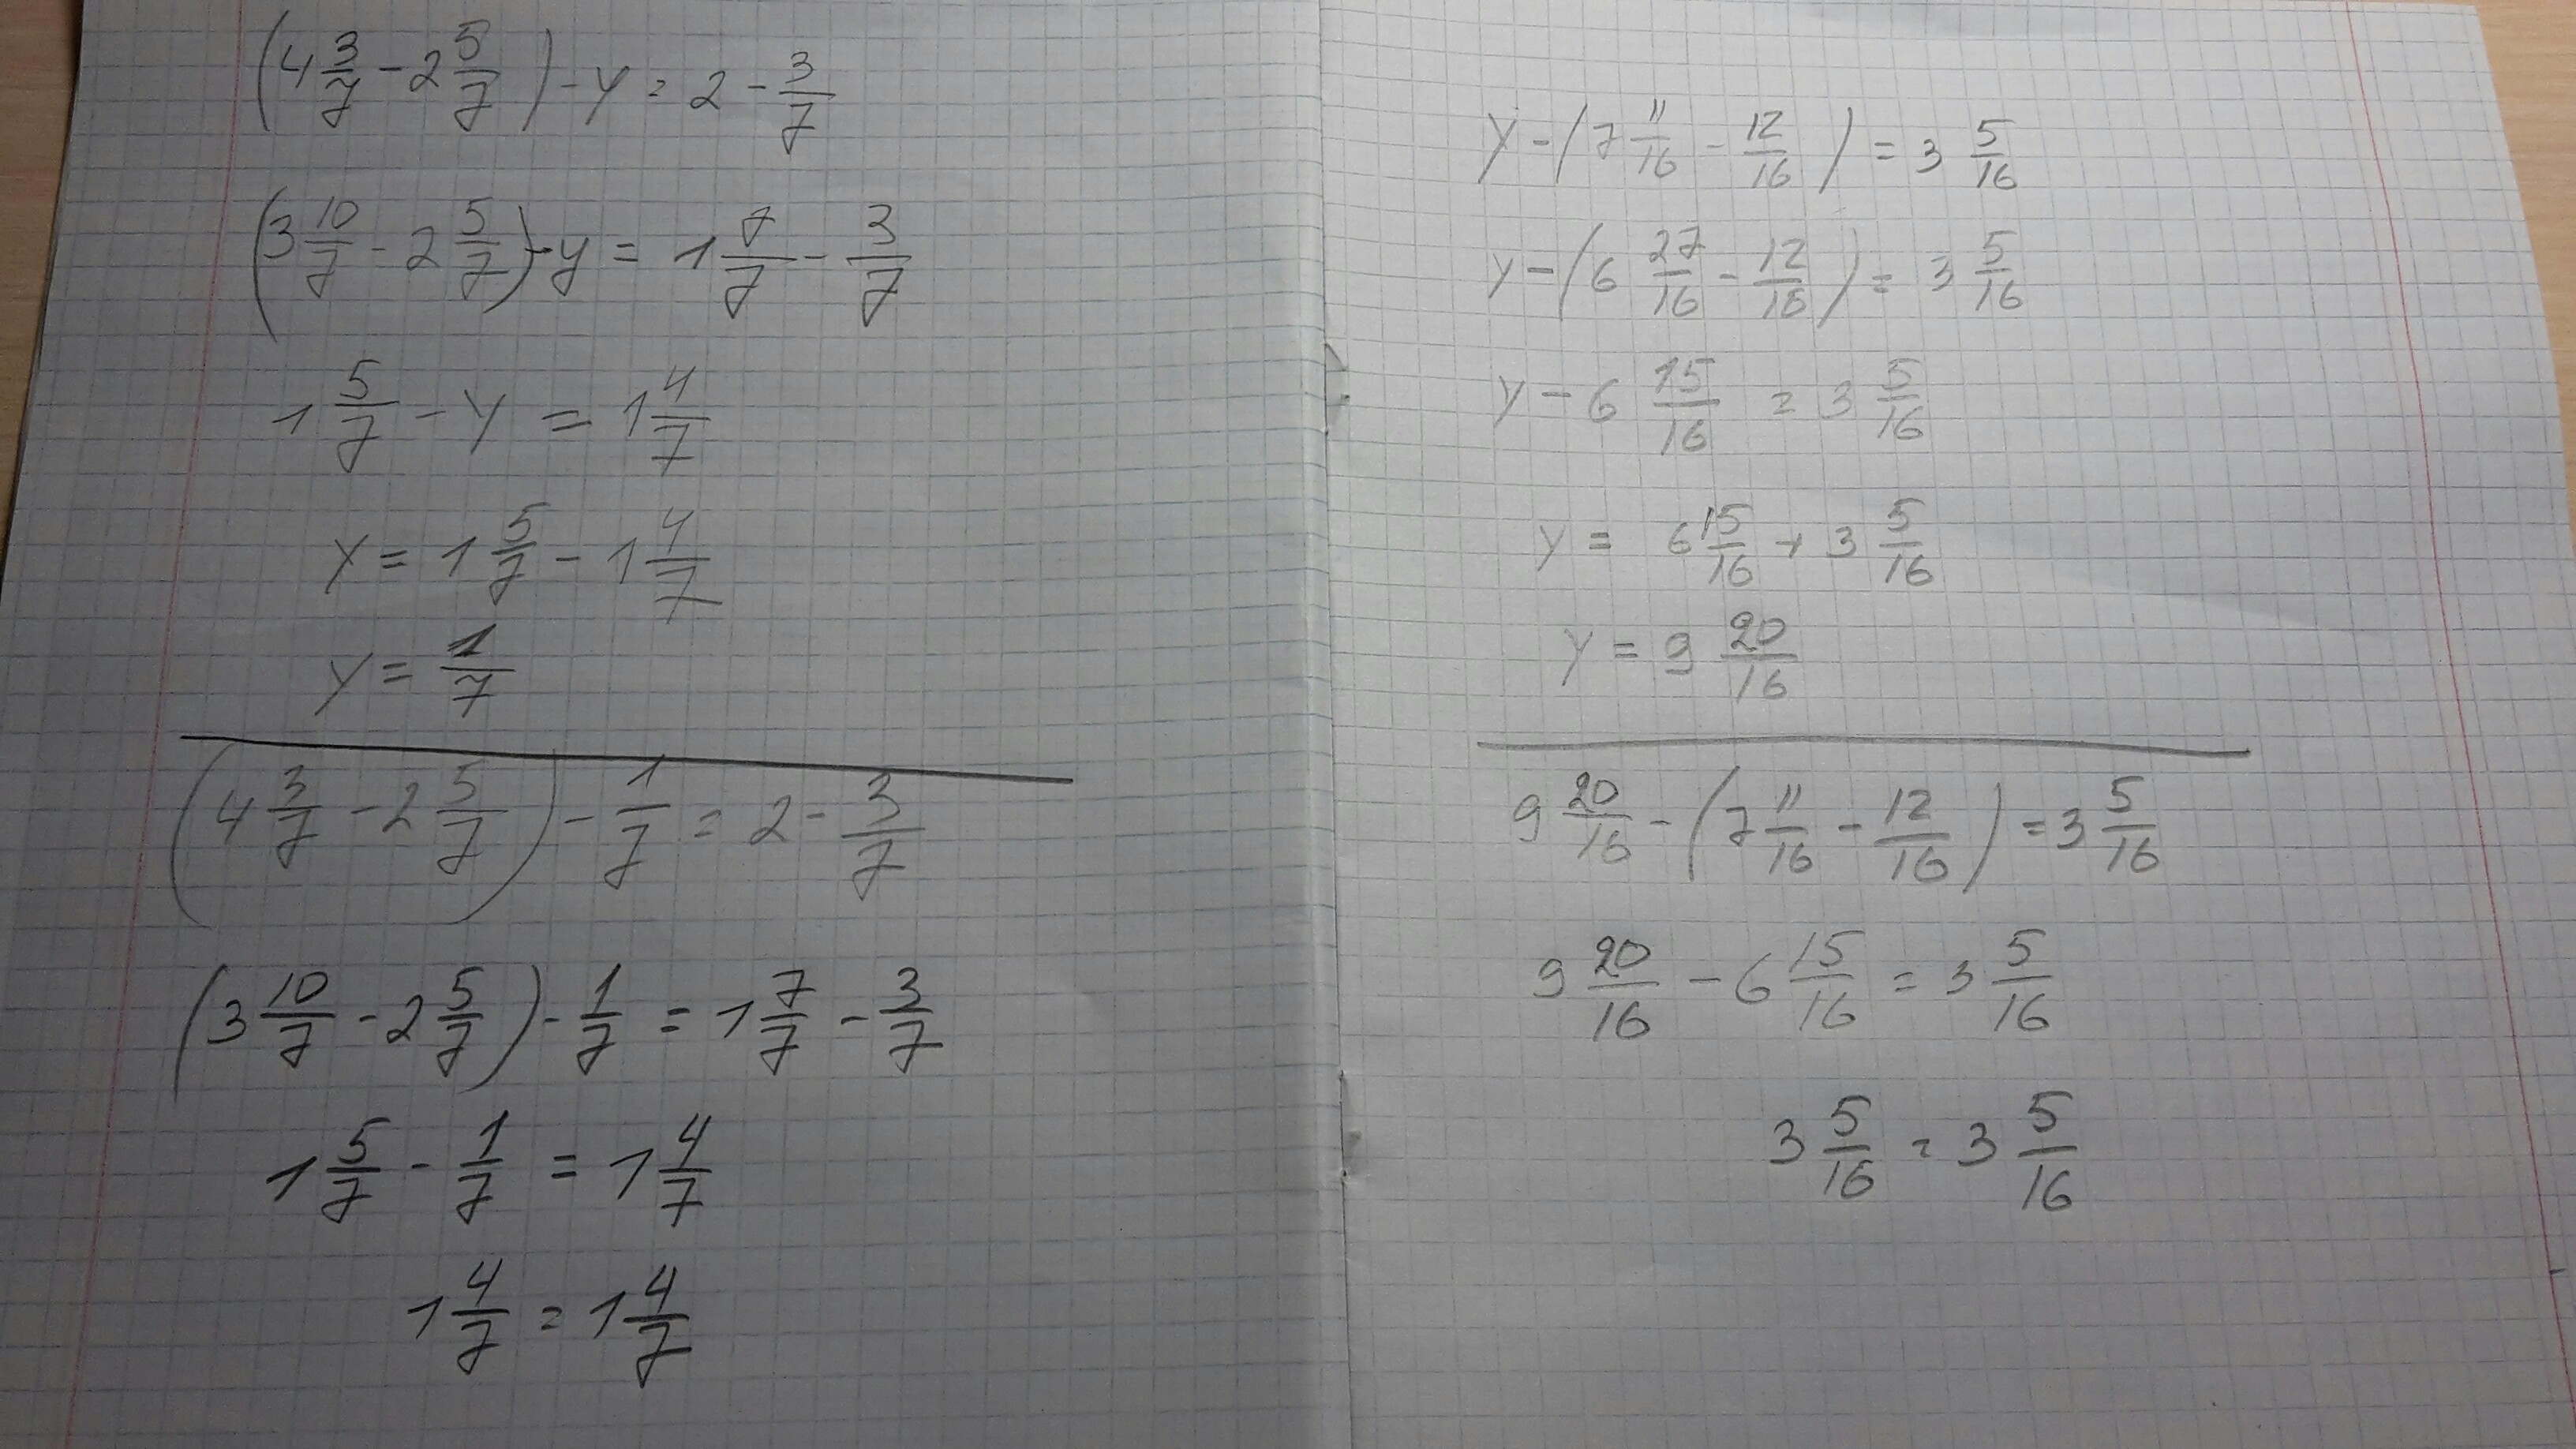 (4 3/7 - 2 5/7) - y = 2 - 3/7
(3 10/7 - 2 5/7) - y = 1 7/7 - 3/7
1 5/7 - y = 1 4/7
x = 1 5/7 - 1 4/7
y = 1/7
(4 3/7 - 2 5/7) - 1/7 = 2 - 3/7
(3 10/7 - 2 5/7) - 1/7 = 1 7/7 - 3/7
1 5/7 - 1/7 = 1 4/7
1 4/7 = 1 4/7
y - (7 11/16 - 12/16) = 3 5/16
y - (6 27/16 - 12/16) = 3 5/16
y - 6 15/16 = 3 5/16
y = 6 15/16 + 3 5/16
y = 9 20/16
9 20/16 - (7 11/16 - 12/16) = 3 5/16
9 20/16 - 6 15/16 = 3 5/16
3 5/16 = 3 5/16